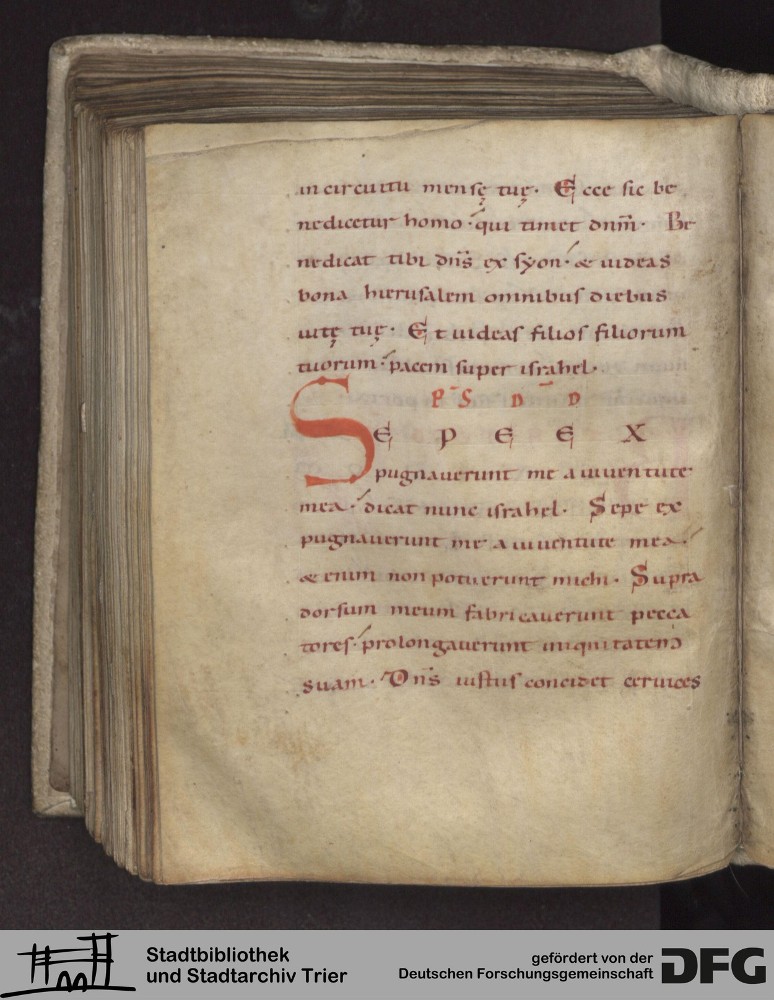 in circuitu mensę tuę. Ecce sic be
nedicetur homo. qui timet dnm̄. Be
nedicat tibi dn̄s ex syon. & uideas
bona hierusalem omnibus diebus
uitę tuę. Et uideas filios filiorum
tuorum. pacem super israhel.
PS D D
SEPE EX
pugnauerunt me a iuuentute
mea. dicat nunc israhel. Sepe ex
pugnauerunt me a iuuentute mea.
& enim non potuerunt michi. Supra
dorsum meum fabricauerunt pecca
tores. prolongauerunt iniquitatem
suam. Dn̄s iustus concidet ceruices
Stadtbibliothek
und Stadtarchiv Trier
gefördert von der
Deutschen Forschungsgemeinschaft
DFG